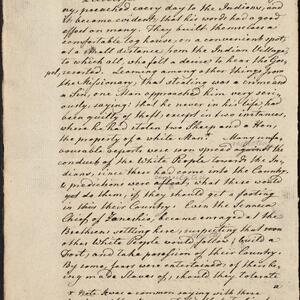 ny, preached every day to the Indians, and
it became evident, that his words had a good
effect on many. They built themselves a
comfortable log house, in a convenient spot,
at a small distance from the Indian Village,
to which all, who felt a desire to hear the Gos-
pel, resorted. Learning among other things from
the Missionary, that stealing was a crime and
a Sin, one Man approached him very seri-
ously, saying: that he never in his life, had
been guilty of theft, except in two instances,
where he had stolen two Sheep and a Hen,
the property of a white Man. Many un-
favorable reports were soon spread against the
conduct of the White People towards the In-
dians, since these had come into the Country,
& predictions were afloat, what these would
yet do, if they should get a footing
in this their Country. Even the Seneca
Chief, of became enraged at the
Brethren settling here; suspecting that soon
other White People would follow; build a
Fort, and take possession of their Country.
By some, fears were entertained of their be-
ing made Slaves of, should they tolerate
x Note. It was a common saying with these